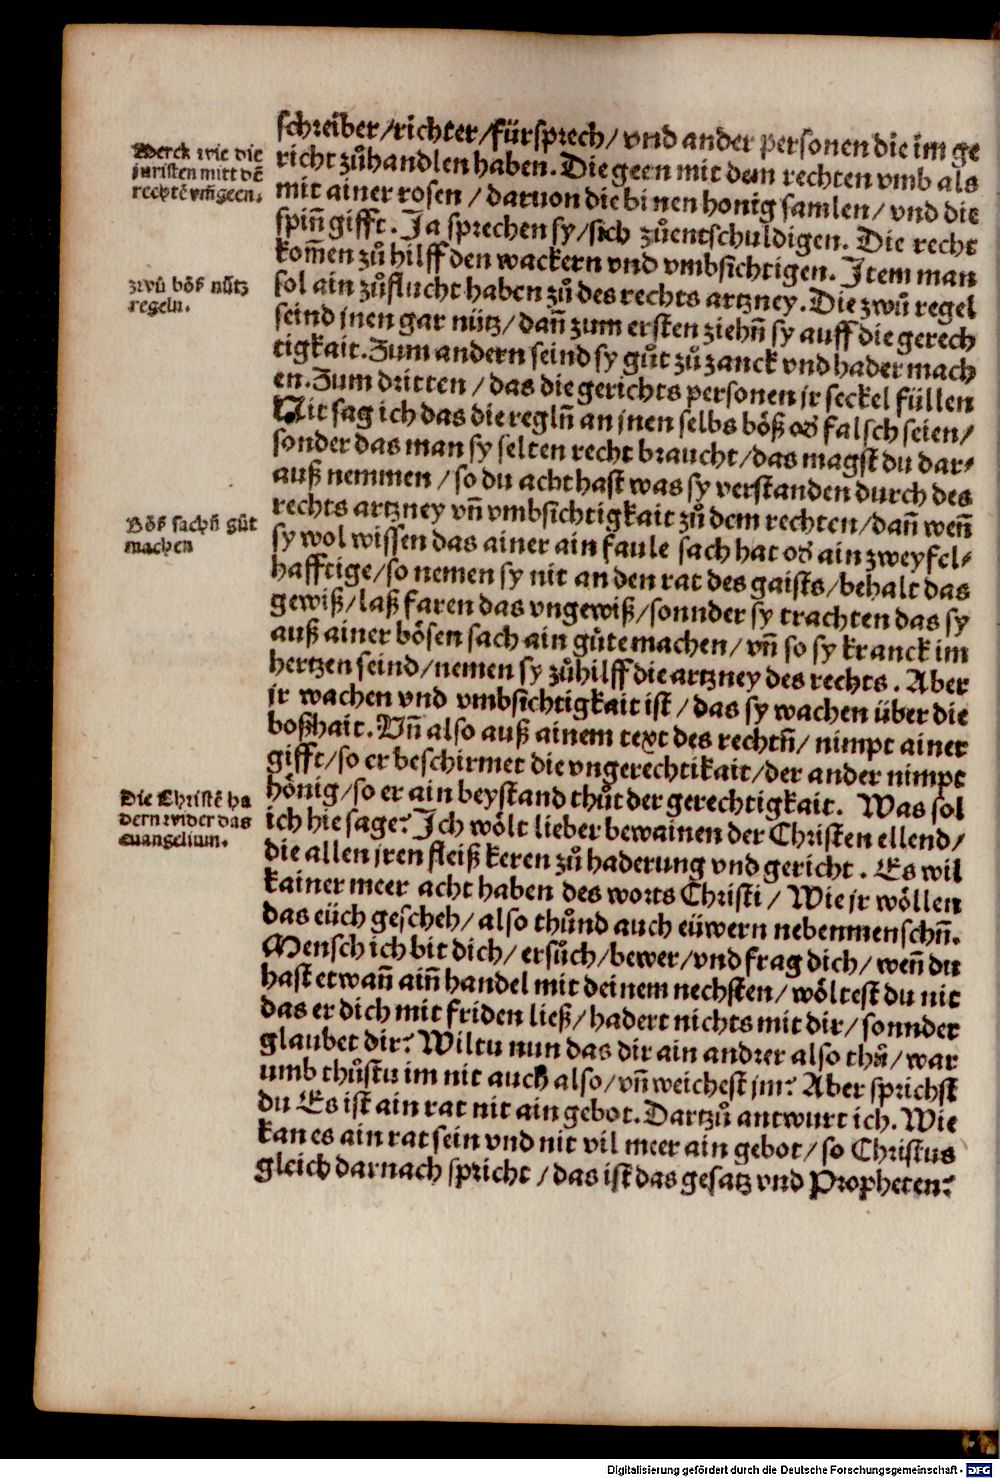 schreiber/richter/fürsprech/ vnd ander personen die im ge
richt zůhandlen haben. Die geen mit dem rechten vmb als
mit ainer rosen / daruon die binen honig samlen/ vnd die
spiñ gifft. Ja sprechen sy/sich zůentschuldigen. Die recht
kom̃en zů hilff den wackern vnd vmbsichtigen. Jtem man
sol ain zůflucht haben zů des rechts artzney. Die zwů regel
seind jnen gar nütz/ dañ zum ersten ziehñ sy auff die gerech
tigkait. Zum andern seind sy gůt zů zanck vnd hader mach
en. Zum dritten / das die gerichts personen jr seckel füllen
Nit sag ich das die reglñ an jnen selbs böß od̕ falsch seien/
sonder das man sy selten recht braucht/das magst du dar⸗
auß nemmen / so du acht hast was sy verstanden durch des
rechts artzney vñ vmbsichtigkait zů dem rechten/dañ weñ
sy wol wissen das ainer ain faule sach hat od̕ ain zweyfel⸗
hafftige/so nemen sy nit an den rat des gaists/behalt das
gewiß/laß faren das vngewiß/sonnder sy trachten das sy
auß ainer bösen sach ain gůte machen/ vñ so sy kranck im
hertzen seind/nemen sy zůhilff die artzney des rechts. Aber
jr wachen vnd vmbsichtigkait ist / das sy wachen über die
boßhait. Vñ also auß ainem text des rechtñ/ nimpt ainer
gifft/so er beschirmet die vngerechtikait/der ander nimpt
hönig/so er ain beystand thůt der gerechtigkait. Was sol
ich hie sage? Jch wölt lieber bewainen der Christen ellend/
die allen jren fleiß keren zů haderung vnd gericht. Es wil
kainer meer acht haben des worts Christi / Wie jr wöllen
das eüch gescheh/ also thůnd auch eüwern nebenmenschñ.
Mensch ich bit dich/ ersůch/bewer/vnd frag dich/ weñ du
hast etwañ aiñ handel mit deinem nechsten/ wöltest du nit
das er dich mit friden ließ/ hadert nichts mit dir/ sonnder
glaubet dir? Wiltu nun das dir ain andrer also thů/ war
umb thůstu im nit auch also/ vñ weichest jm? Aber sprichst
du Es ist ain rat nit ain gebot. Dartzů antwurt ich. Wie
kan es ain rat sein vnd nit vil meer ain gebot/ so Christus
gleich darnach spricht / das ist das gesatz vnd Propheten?
Merck wie die
juristen mitt dẽ
rechtẽ vm̃geen.
zwů böß nütz
regeln.
Böß sachñ gůt
machen
Die Christẽ ha
dern wider das
euangelium.
Digitalisierung gefördert durch die Deutsche Forschungsgemeinschaft - DFG